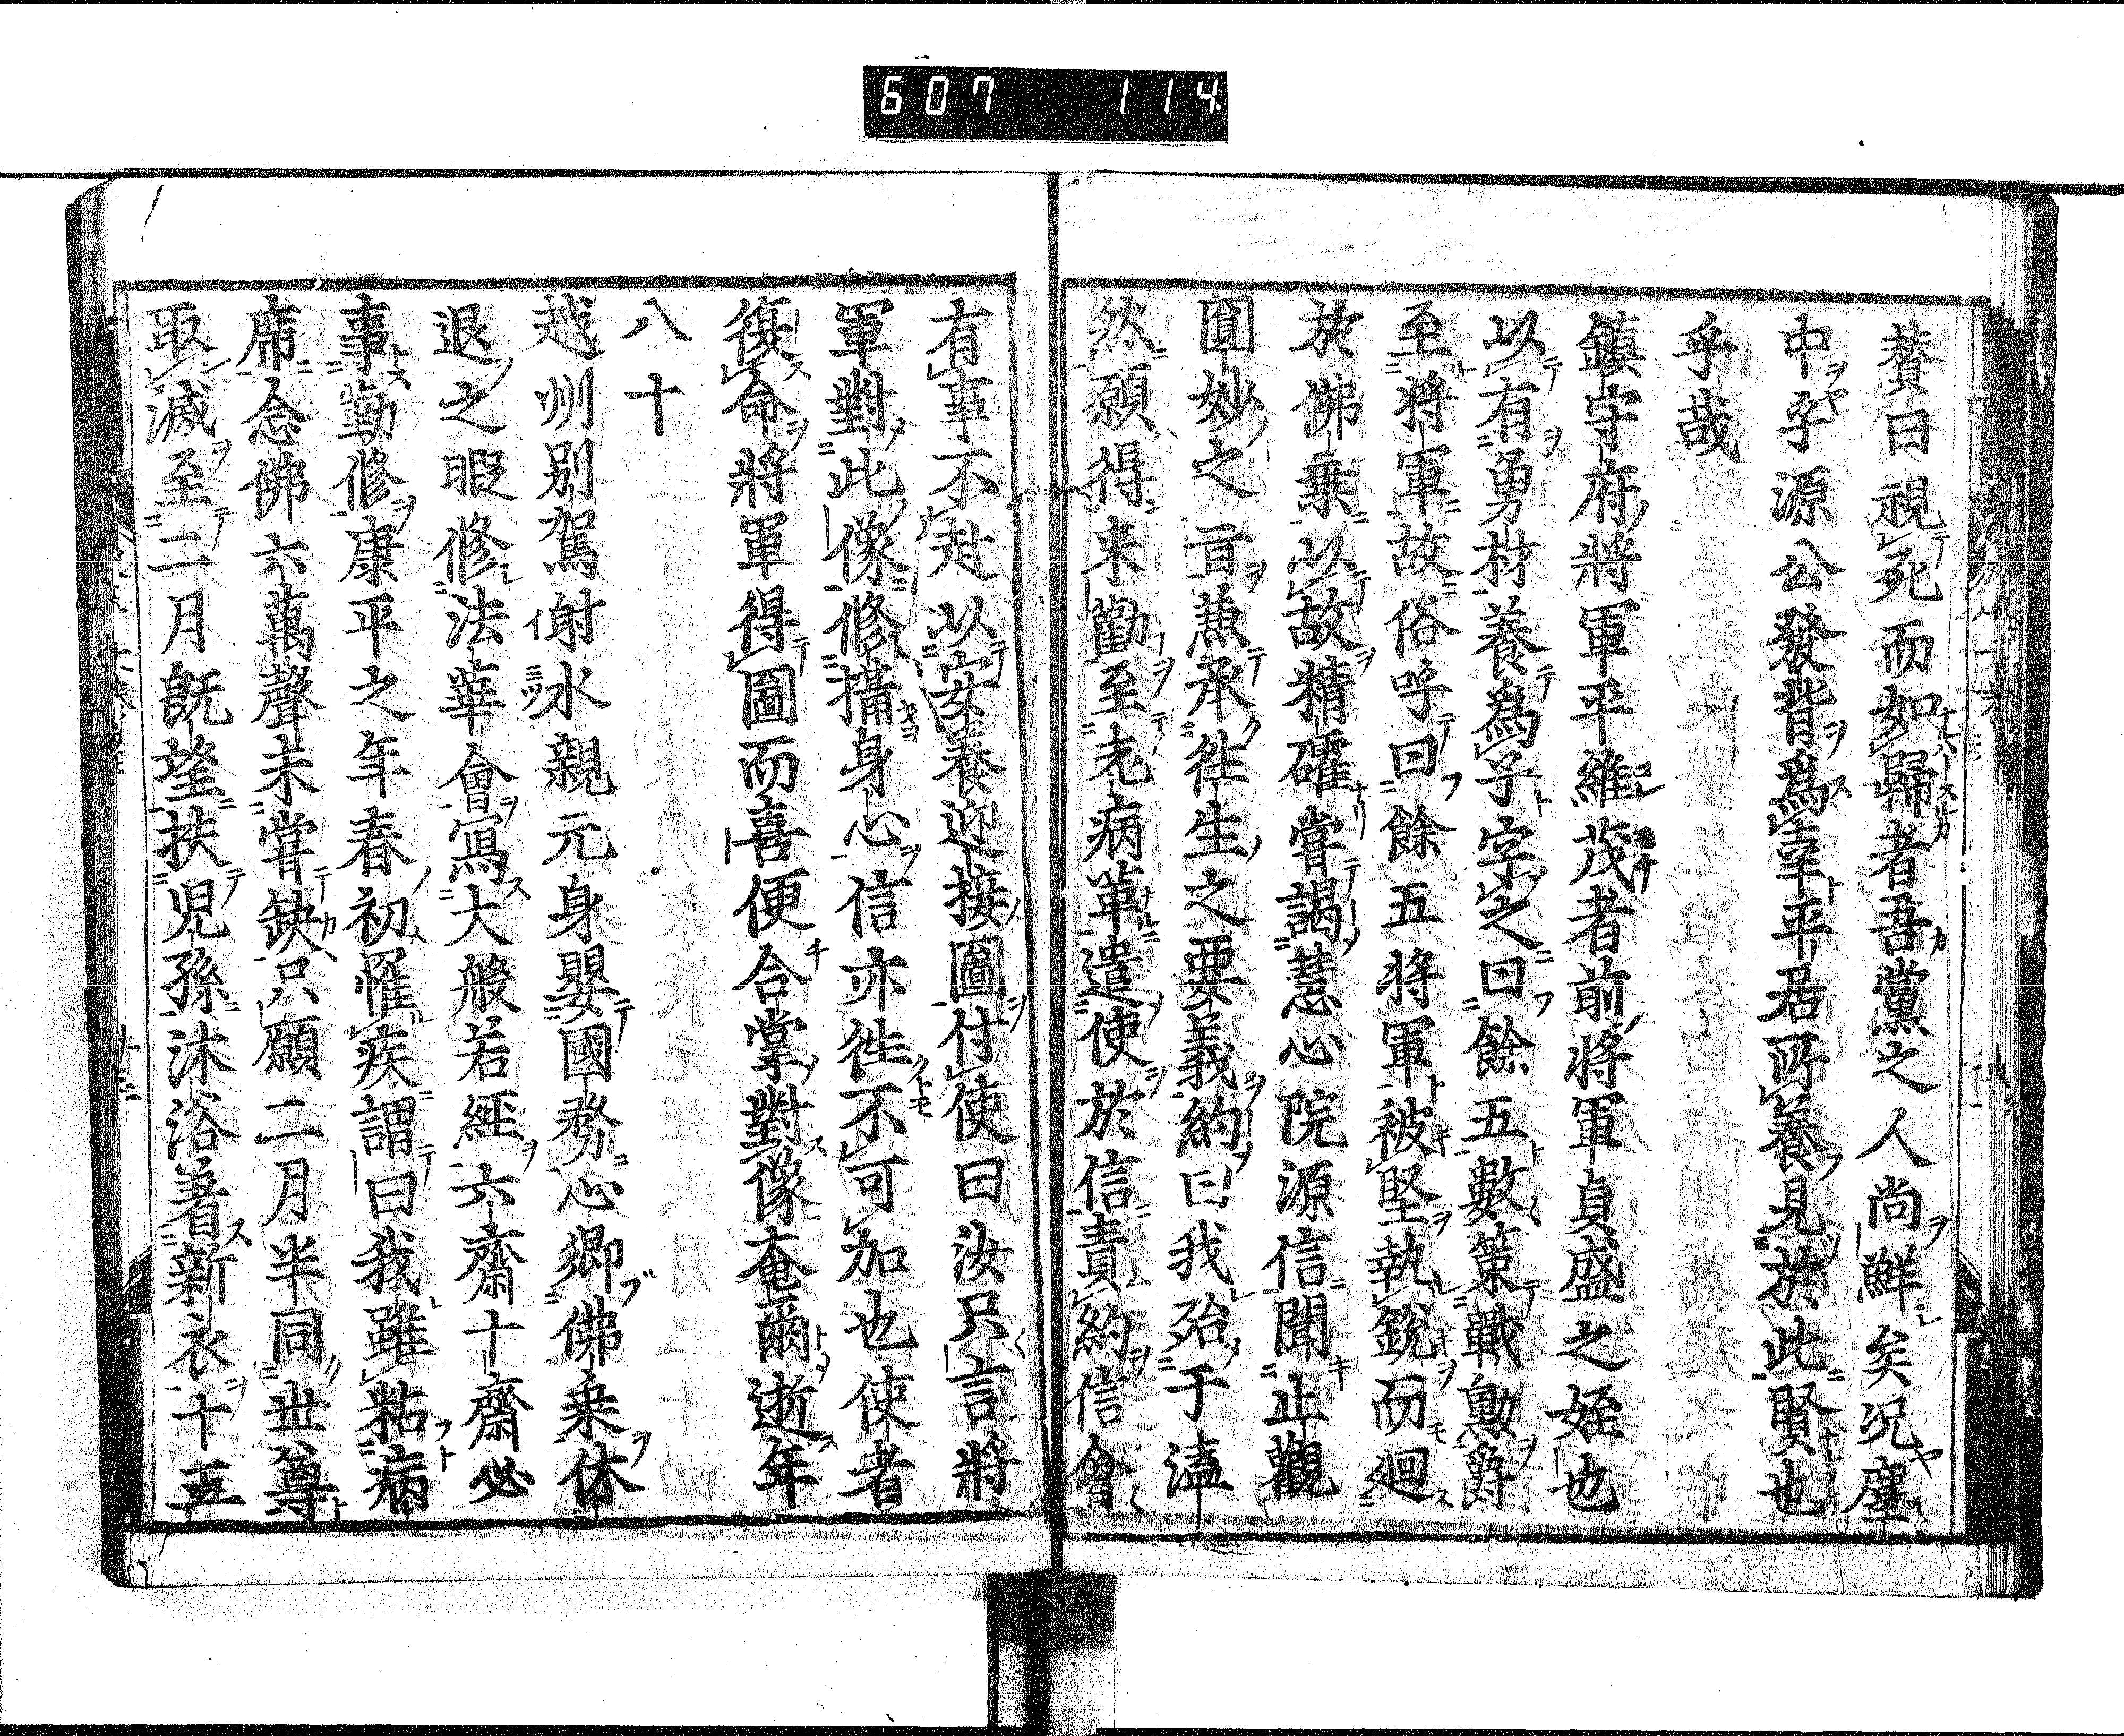 607 114
賛曰視死而如歸者吾黨之人尚鮮矣况塵
中乎源公發背爲幸平居所養見於此賢也
乎哉
鎮守府將軍平維茂者前將軍貞盛之姪也
以有勇材養爲子字之曰餘五數策戰勳爵
至將軍故俗呼曰餘五將軍被堅執銳而迴
於佛乗以故精確甞謁慧心院源信聞止觀
圓妙之旨兼承徃生之要義約曰我殆于溘
然願得来勸至老病革遣使於信責約信會
有事不赴以安養迎接圖付使曰汝只言將
軍對此像修攝身心信亦徃不可加也使者
復命將軍得圖而喜便合掌對像奄爾逝年
八十
越州別駕射水親元身嬰國務心鄉佛乗休
退之暇修法華會寫大般若經六齋十齋必
事勤修康平之年春初罹疾謂曰我雖粘病
席念佛六萬聲未甞缺只願二月半同世尊
取滅至二月旣望扶児孫沐浴著新衣十五